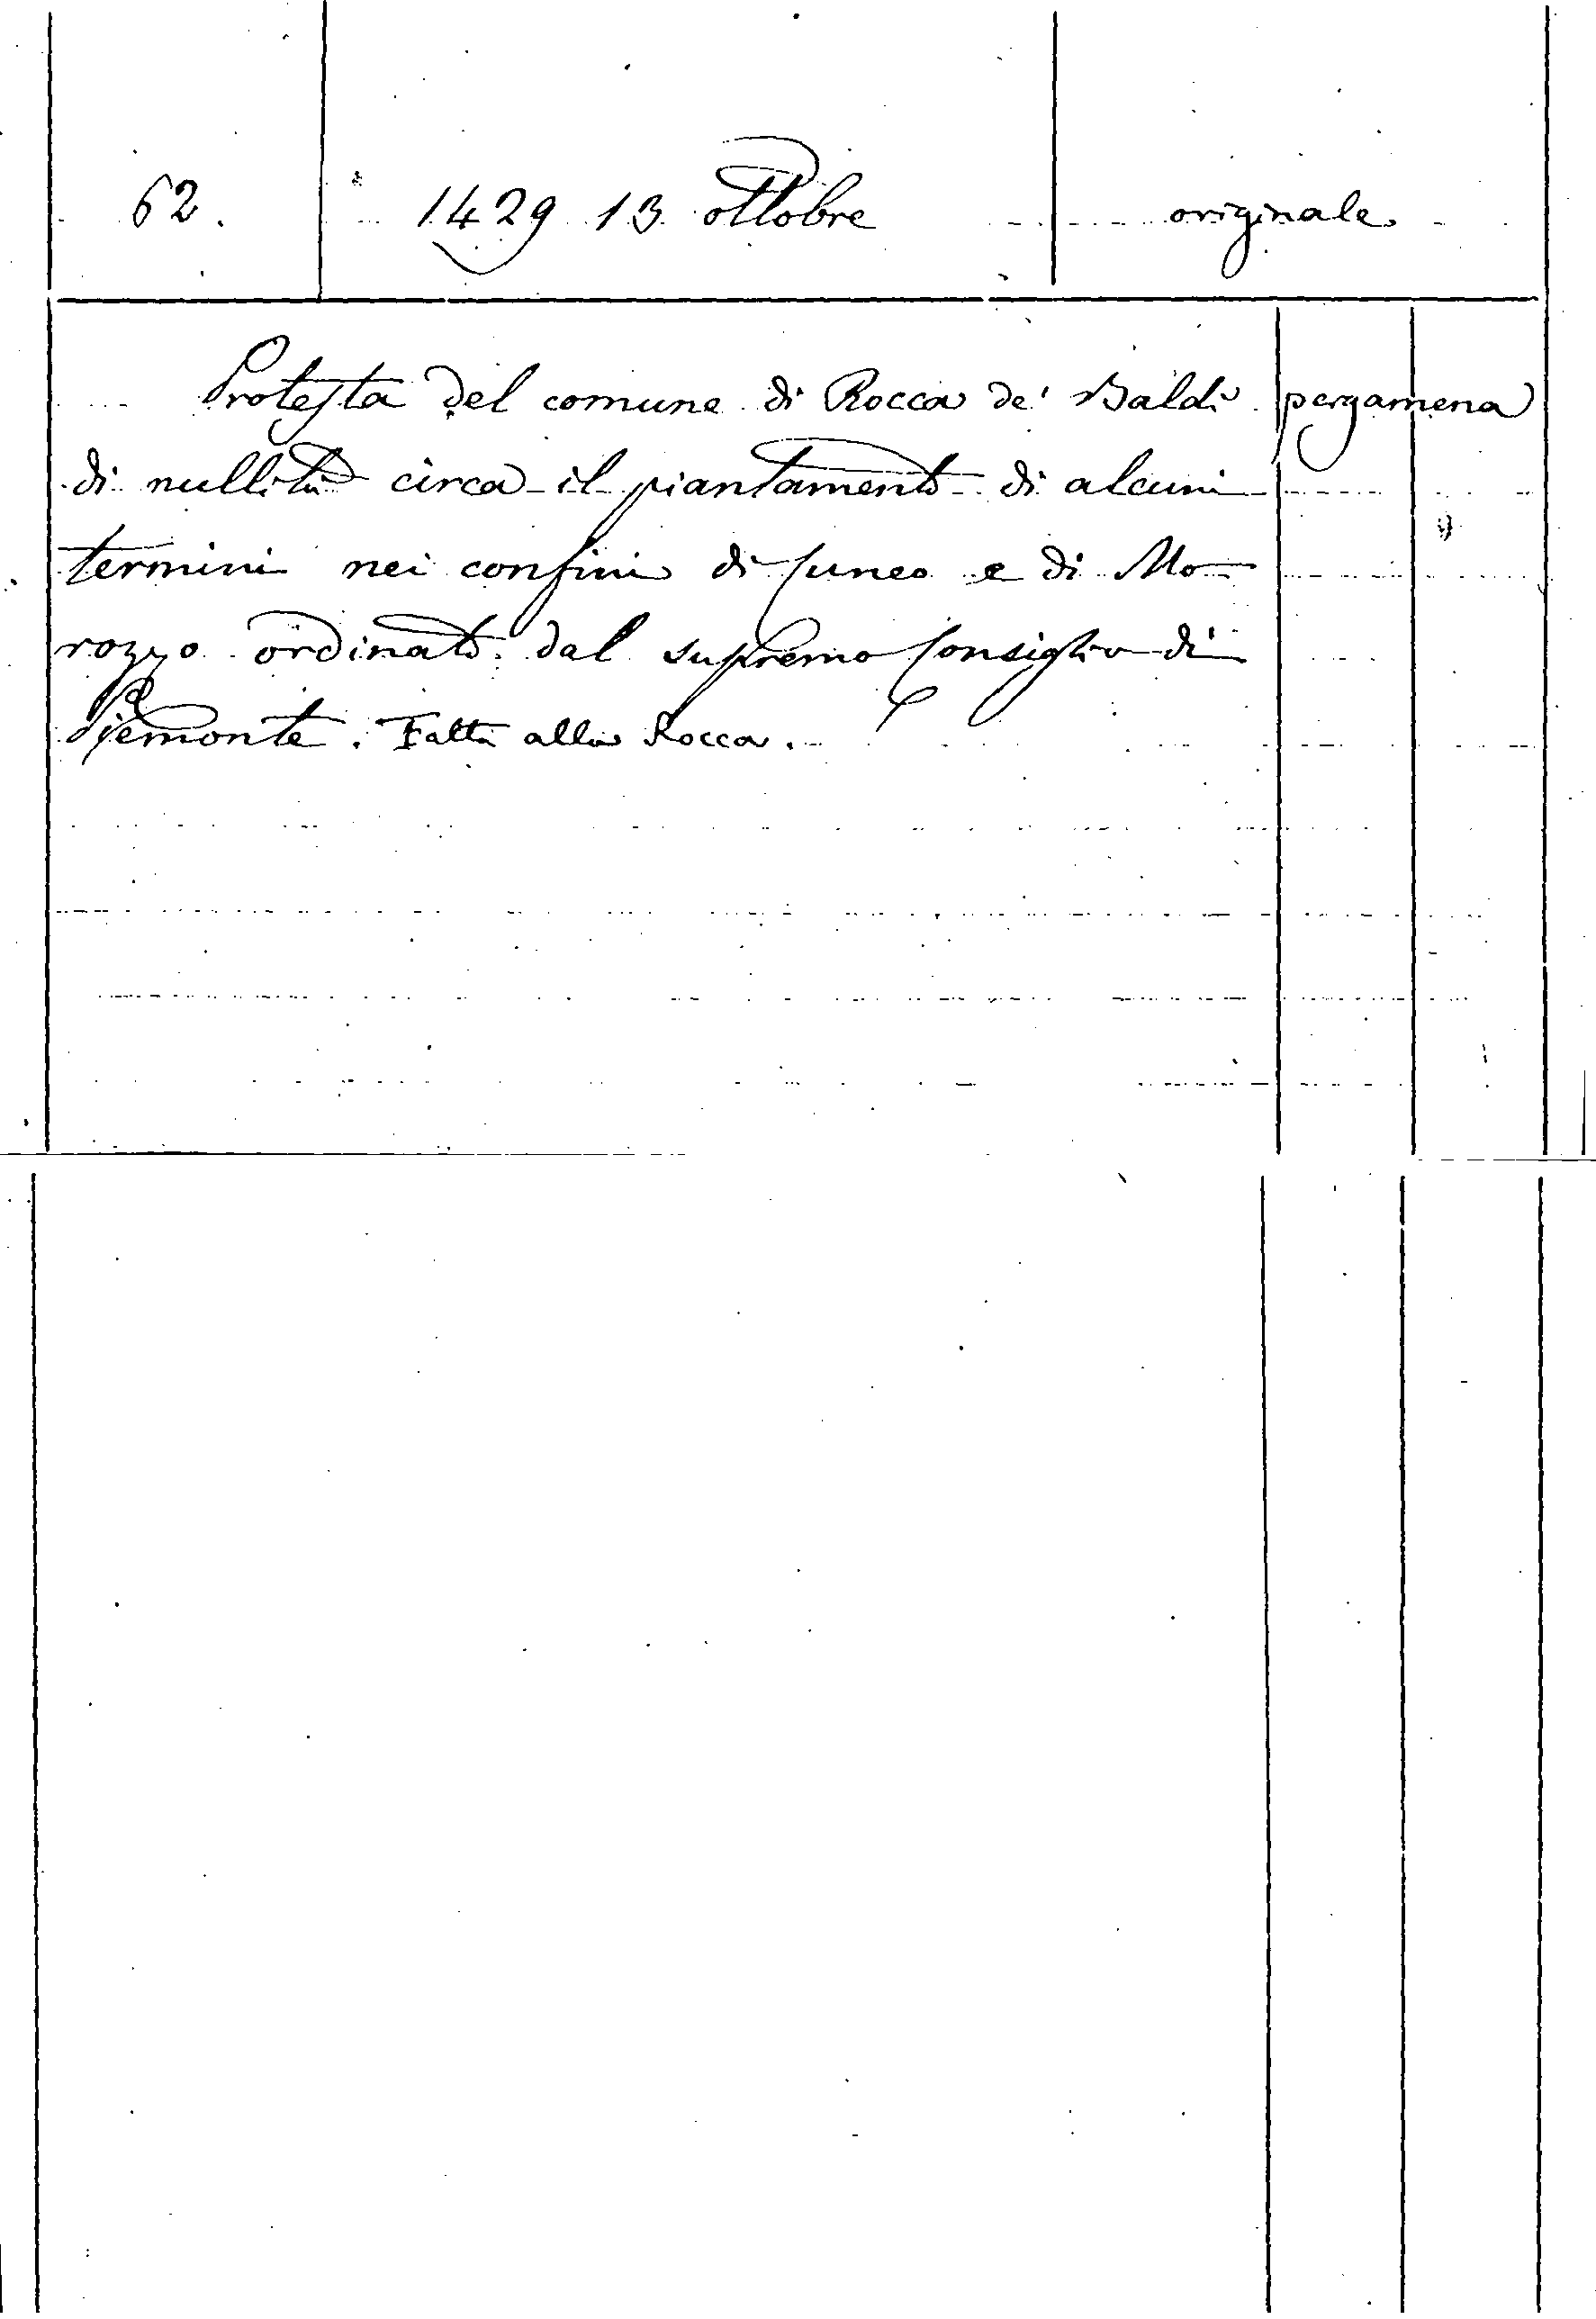 62. 1429 13 ottobre originale
Protesta del comune di Rocca de' Baldi pergamena
di nullità circa il piantamento di alcuni
termini nei confini di Cuneo e di Mo
rozzo ordinato dal supremo Consiglio di
Piemonte. Fatta alla Rocca.